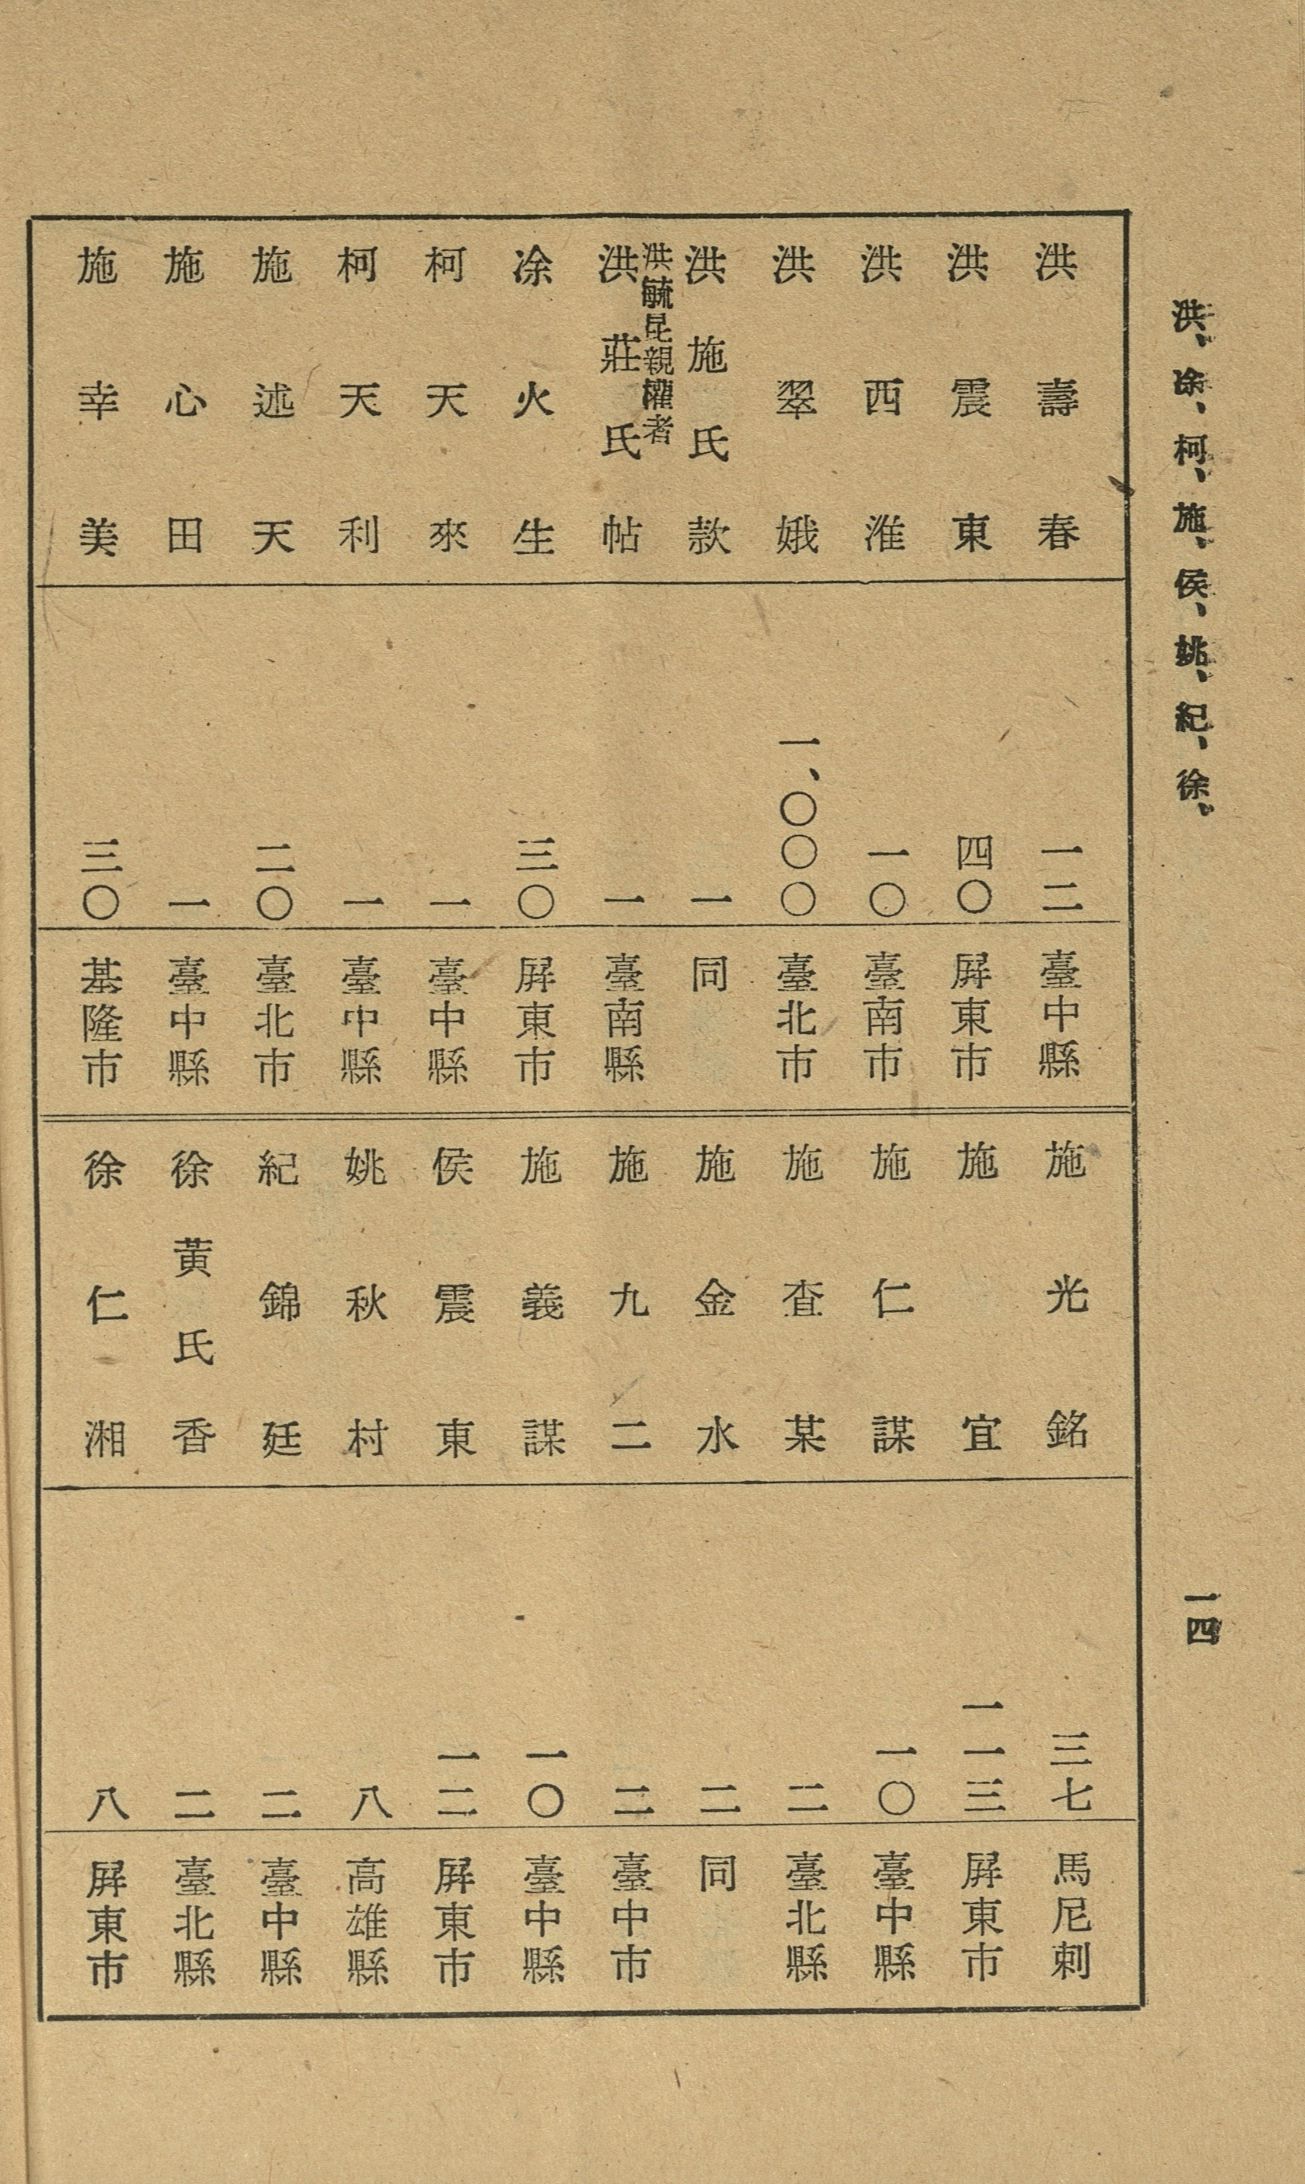 洪、凃、柯、施、侯、姚、紀、徐、
一四
洪壽春 一二 臺中縣
洪震東 四〇 屏東市
洪西淮 一〇 臺南市
洪翠娥 一、〇〇〇 臺北市
洪施氏款 一 同
洪毓昆親權者
洪莊氏帖 一 臺南縣
凃火生 三〇 屏東市
柯天來 一 臺中縣
柯天利 一 臺中縣
施述天 二〇 臺北市
施心田 一 臺中縣
施幸美 三〇 基隆市
施光銘 三七 馬尼剌
施宜 一一三 屏東市
施仁謀 一〇 臺中縣
施查某 二 臺北縣
施金水 二 同
施九二 二 臺中市
施義謀 一〇 臺中縣
侯震東 一二 屏東市
姚秋村 八 高雄縣
紀錦廷 二 臺中縣
徐黃氏香 二 臺北縣
徐仁湘 八 屏東市